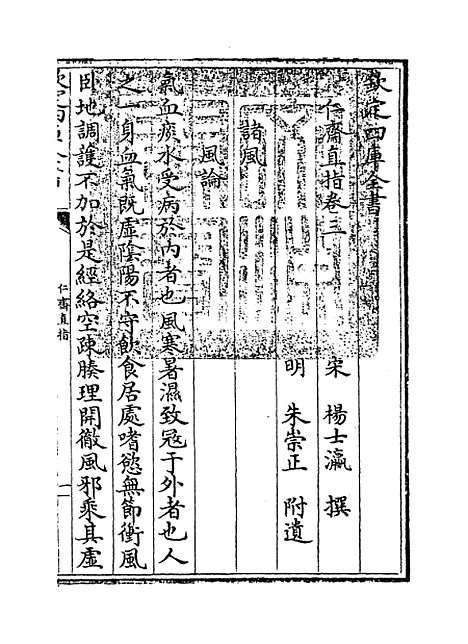 欽定四庫全書
仁齋直指卷三
宋 楊士瀛 撰
明 朱崇正 附遺
諸風
風論
氣血痰水受病於内者也風寒暑濕致寇于外者也人
之一身血氣既虛陰陽不守飲食居處嗜慾無節衝風
卧地調護不加於是經絡空疎腠理開徹風邪乘其虛
仁齋直指
一